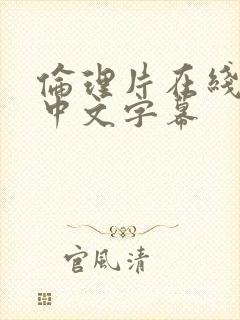 倫理片在綫
中文字幕
官風清